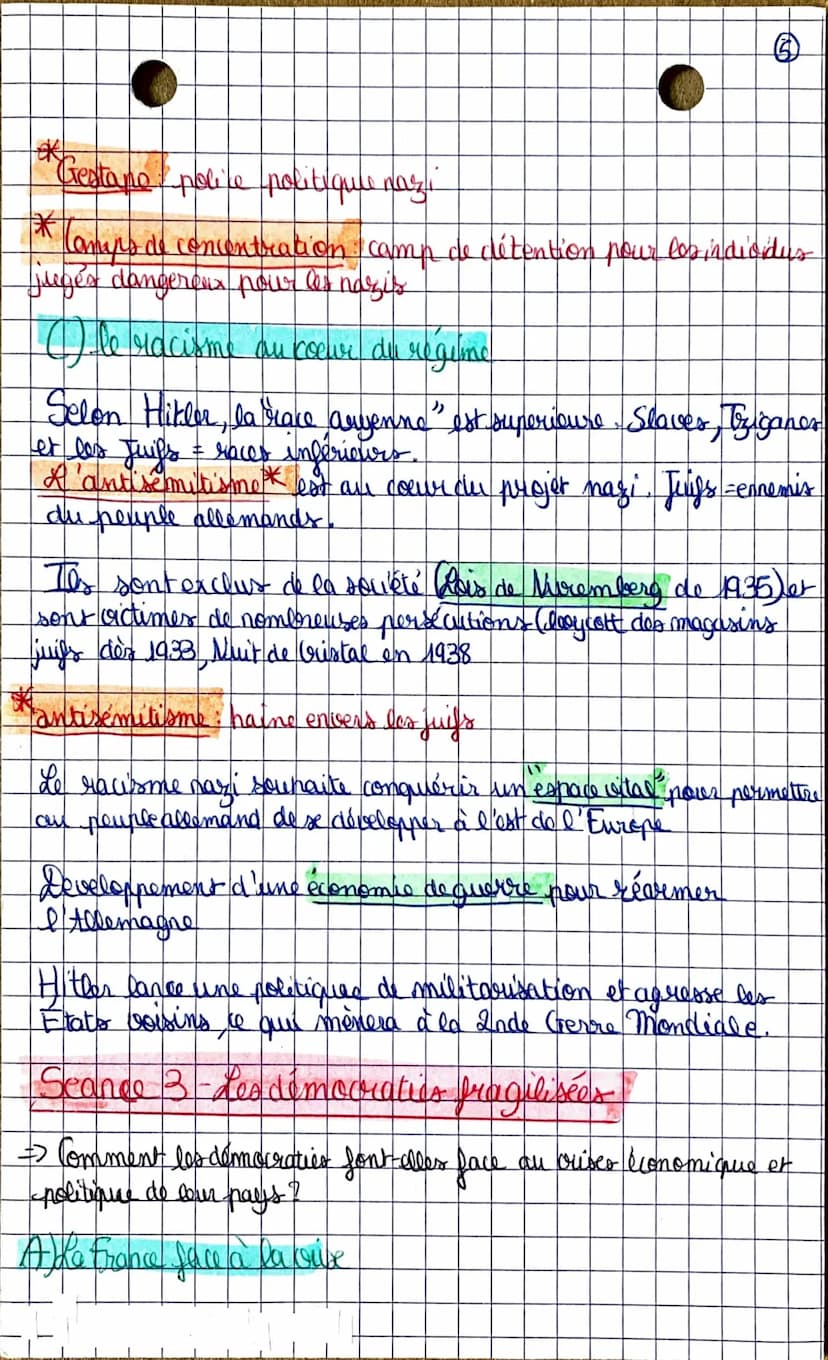 5
*Gestapo : police politique nazi
* Camps de concentration : camp de détention pour les individus
jugés dangereux pour les nazis
C) le racisme au coeur du régime
Selon Hitler, la "race aryenne" est superieure. Slaves, Tziganes
et les Juifs = races inférieurs.
L'antisémitisme* est au coeur du projet nazi. Juifs = ennemis
du peuple allemands.
Ils sont exclus de la société (Lois de Nuremberg de 1935) et
sont victimes de nombreuses persécutions (boycott des magasins
juifs dès 1933, Nuit de Cristal en 1938
*antisémitisme : haine envers les juifs
Le racisme nazi souhaite conquérir un "espace vital" pour permettre
au peuple allemand de se développer à l'est de l'Europe
Developpement d'une économie de guerre pour réarmer
l'Allemagne
Hitler lance une politique de militarisation et agresse les
États voisins, ce qui mènera à la 2nde Gerre Mondiale.
Seance 3 - Les démocraties fragilisées
=> Comment les démocraties font-elles face au crises économique et
politique de leur pays ?
A) La France face à la crise